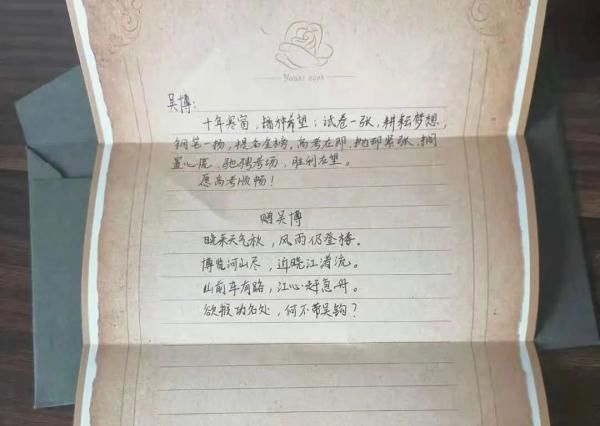 Yours ever
吴博：
十年寒窗，播种希望；试卷一张，耕耘梦想，
钢笔一扬，提名金榜，高考在即，抛却紧张，搁
置心慌，驰骋考场，胜利在望。
愿高考顺畅！
赠吴博
晚来天气秋，风雨仍登楼。
博览河山尽，近晓江渚流。
山前车有路，江心赶急舟。
欲报功名处，何不带吴钩？